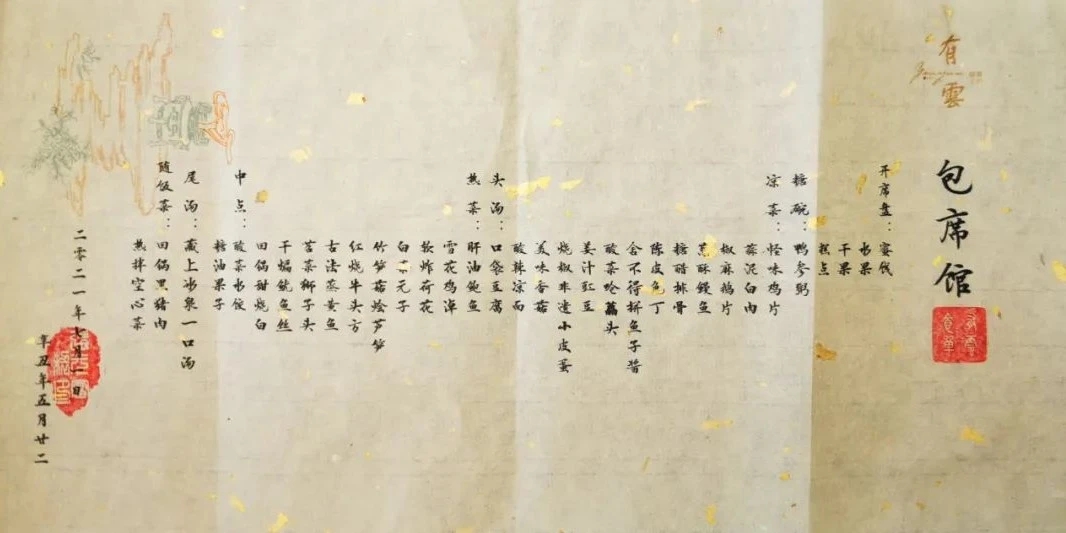 有雲
包席馆
开席盘：蜜饯
水果
干果
糕点
糖碗：鸭参粥
凉菜：怪味鸡片
蒜泥白肉
椒麻鹅片
葱酥鲫鱼
糖醋排骨
陈皮兔丁
舍不得拼鱼子酱
酸菜呛藠头
姜汁豇豆
烧椒半边小皮蛋
美味香菇
酸辣凉面
头汤：口袋豆腐
热菜：肝油鲍鱼
雪花鸡淖
软炸荷花
白汁元子
竹笋菇烩芦笋
红烧牛头方
古法蒸黄鱼
苕菜狮子头
干煸鱿鱼丝
回锅甜烧白
中点：酸菜水饺
糖油果子
尾汤：藏上水泉一口汤
随饭菜：回锅黑猪肉
热拌空心菜
二零二一年七月一日
辛丑年五月廿二